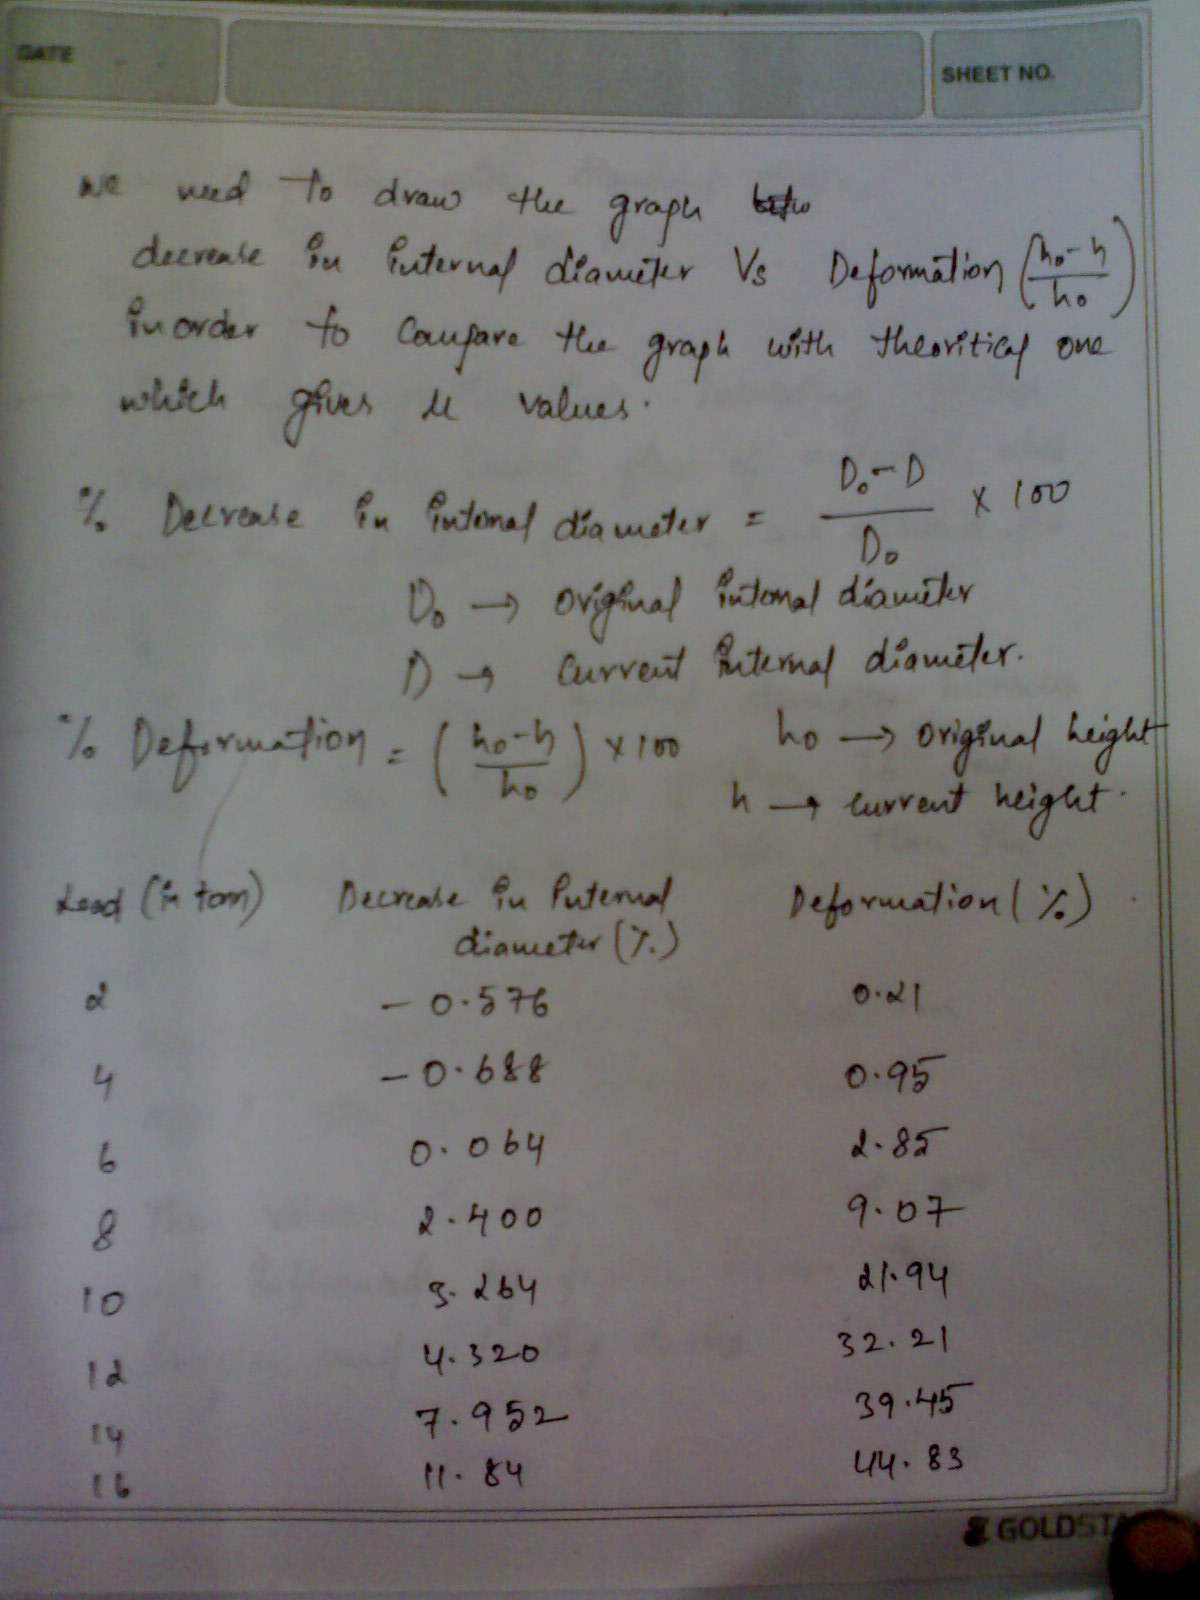 DATE
SHEET NO.
we need to draw the graph
decrease in internal diameter Vs Deformation (h₀-h/h₀)
in order to compare the graph with theoritical one
which gives μ values.
% Decrease in internal diameter = D₀-D/D₀ × 100
D₀ → Original internal diameter
D → Current internal diameter.
% Deformation = (h₀-h/h₀) × 100 h₀ → original height
h → current height.
Load (in tonn) Decrease in internal Deformation (%)
diameter (%)
2 -0.576 0.21
4 -0.688 0.95
6 0.064 2.85
8 2.400 9.07
10 3.264 21.94
12 4.320 32.21
14 7.952 39.45
16 11.84 44.83